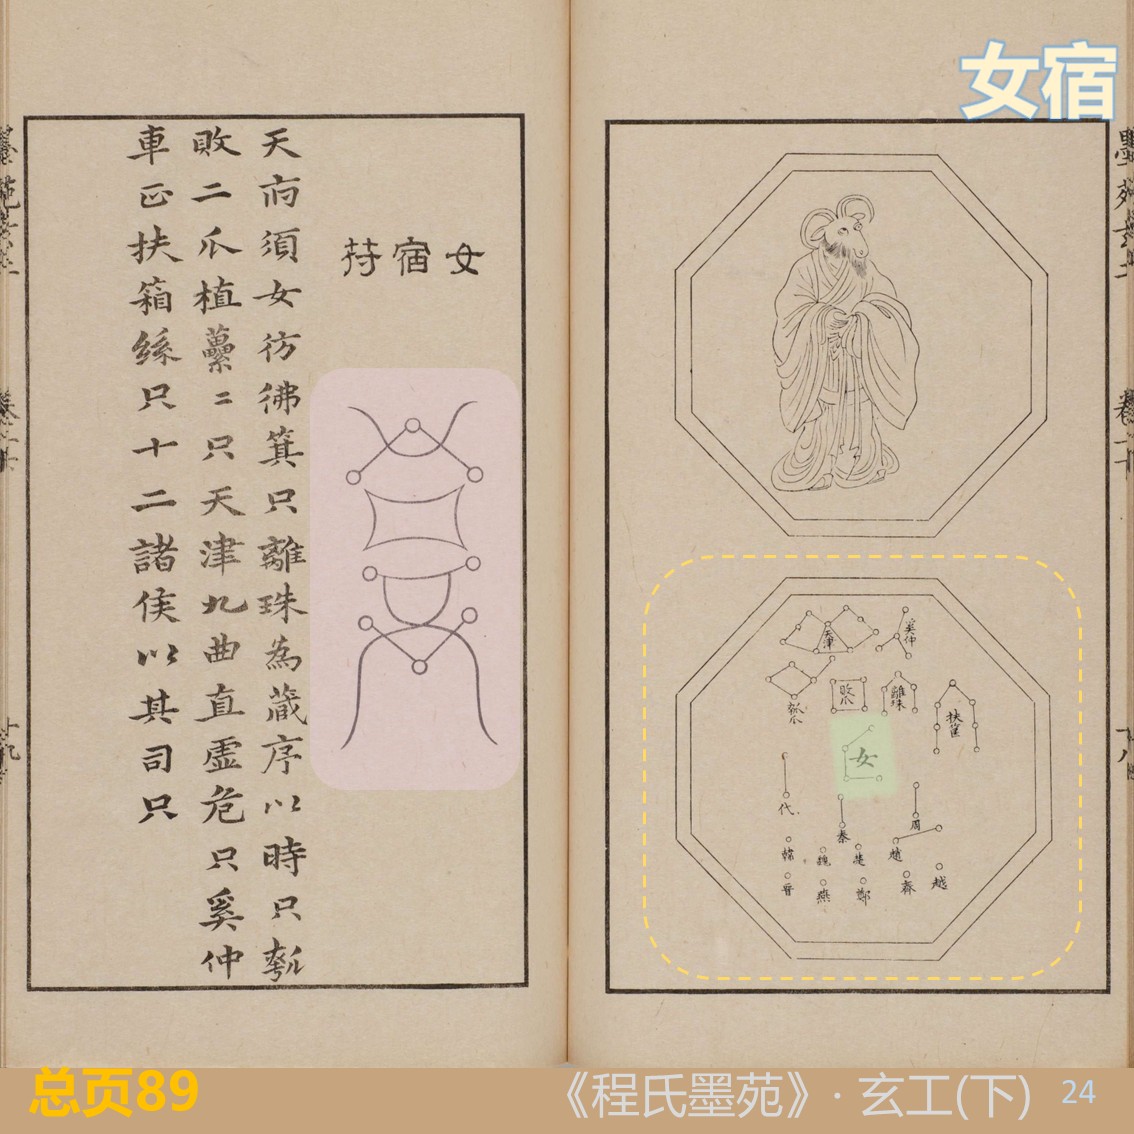 女宿
天津
奚仲
瓠瓜
敗瓜
離珠
扶筐
女
代
秦
周
韓
魏
楚
趙
晉
燕
鄭
齊
越
女宿
天府須女彷彿箕只離珠為藏序以時只瓠
敗二爪植虆二只天津九曲直虛危只奚仲
車正扶箱絲只十二諸侯以其司只
总页89
《程氏墨苑》· 玄工(下)
24